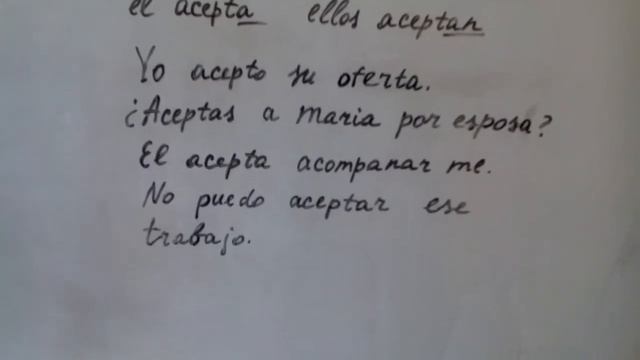 el acepta ellos aceptan
Yo acepto su oferta.
¿Aceptas a maria por esposa?
El acepta acompanar me.
No puedo aceptar ese
trabajo.